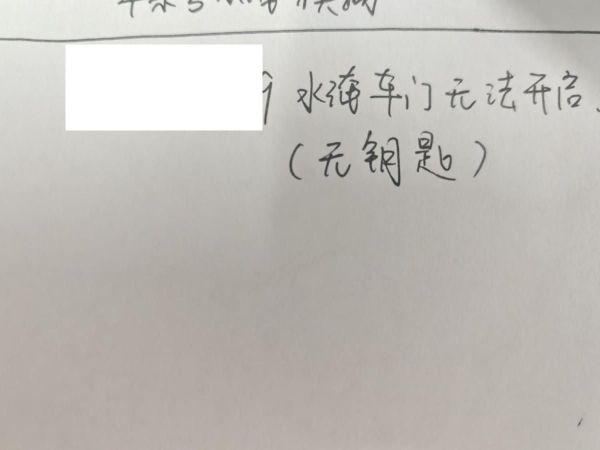 9 水淹车门无法开启、
(无钥匙)